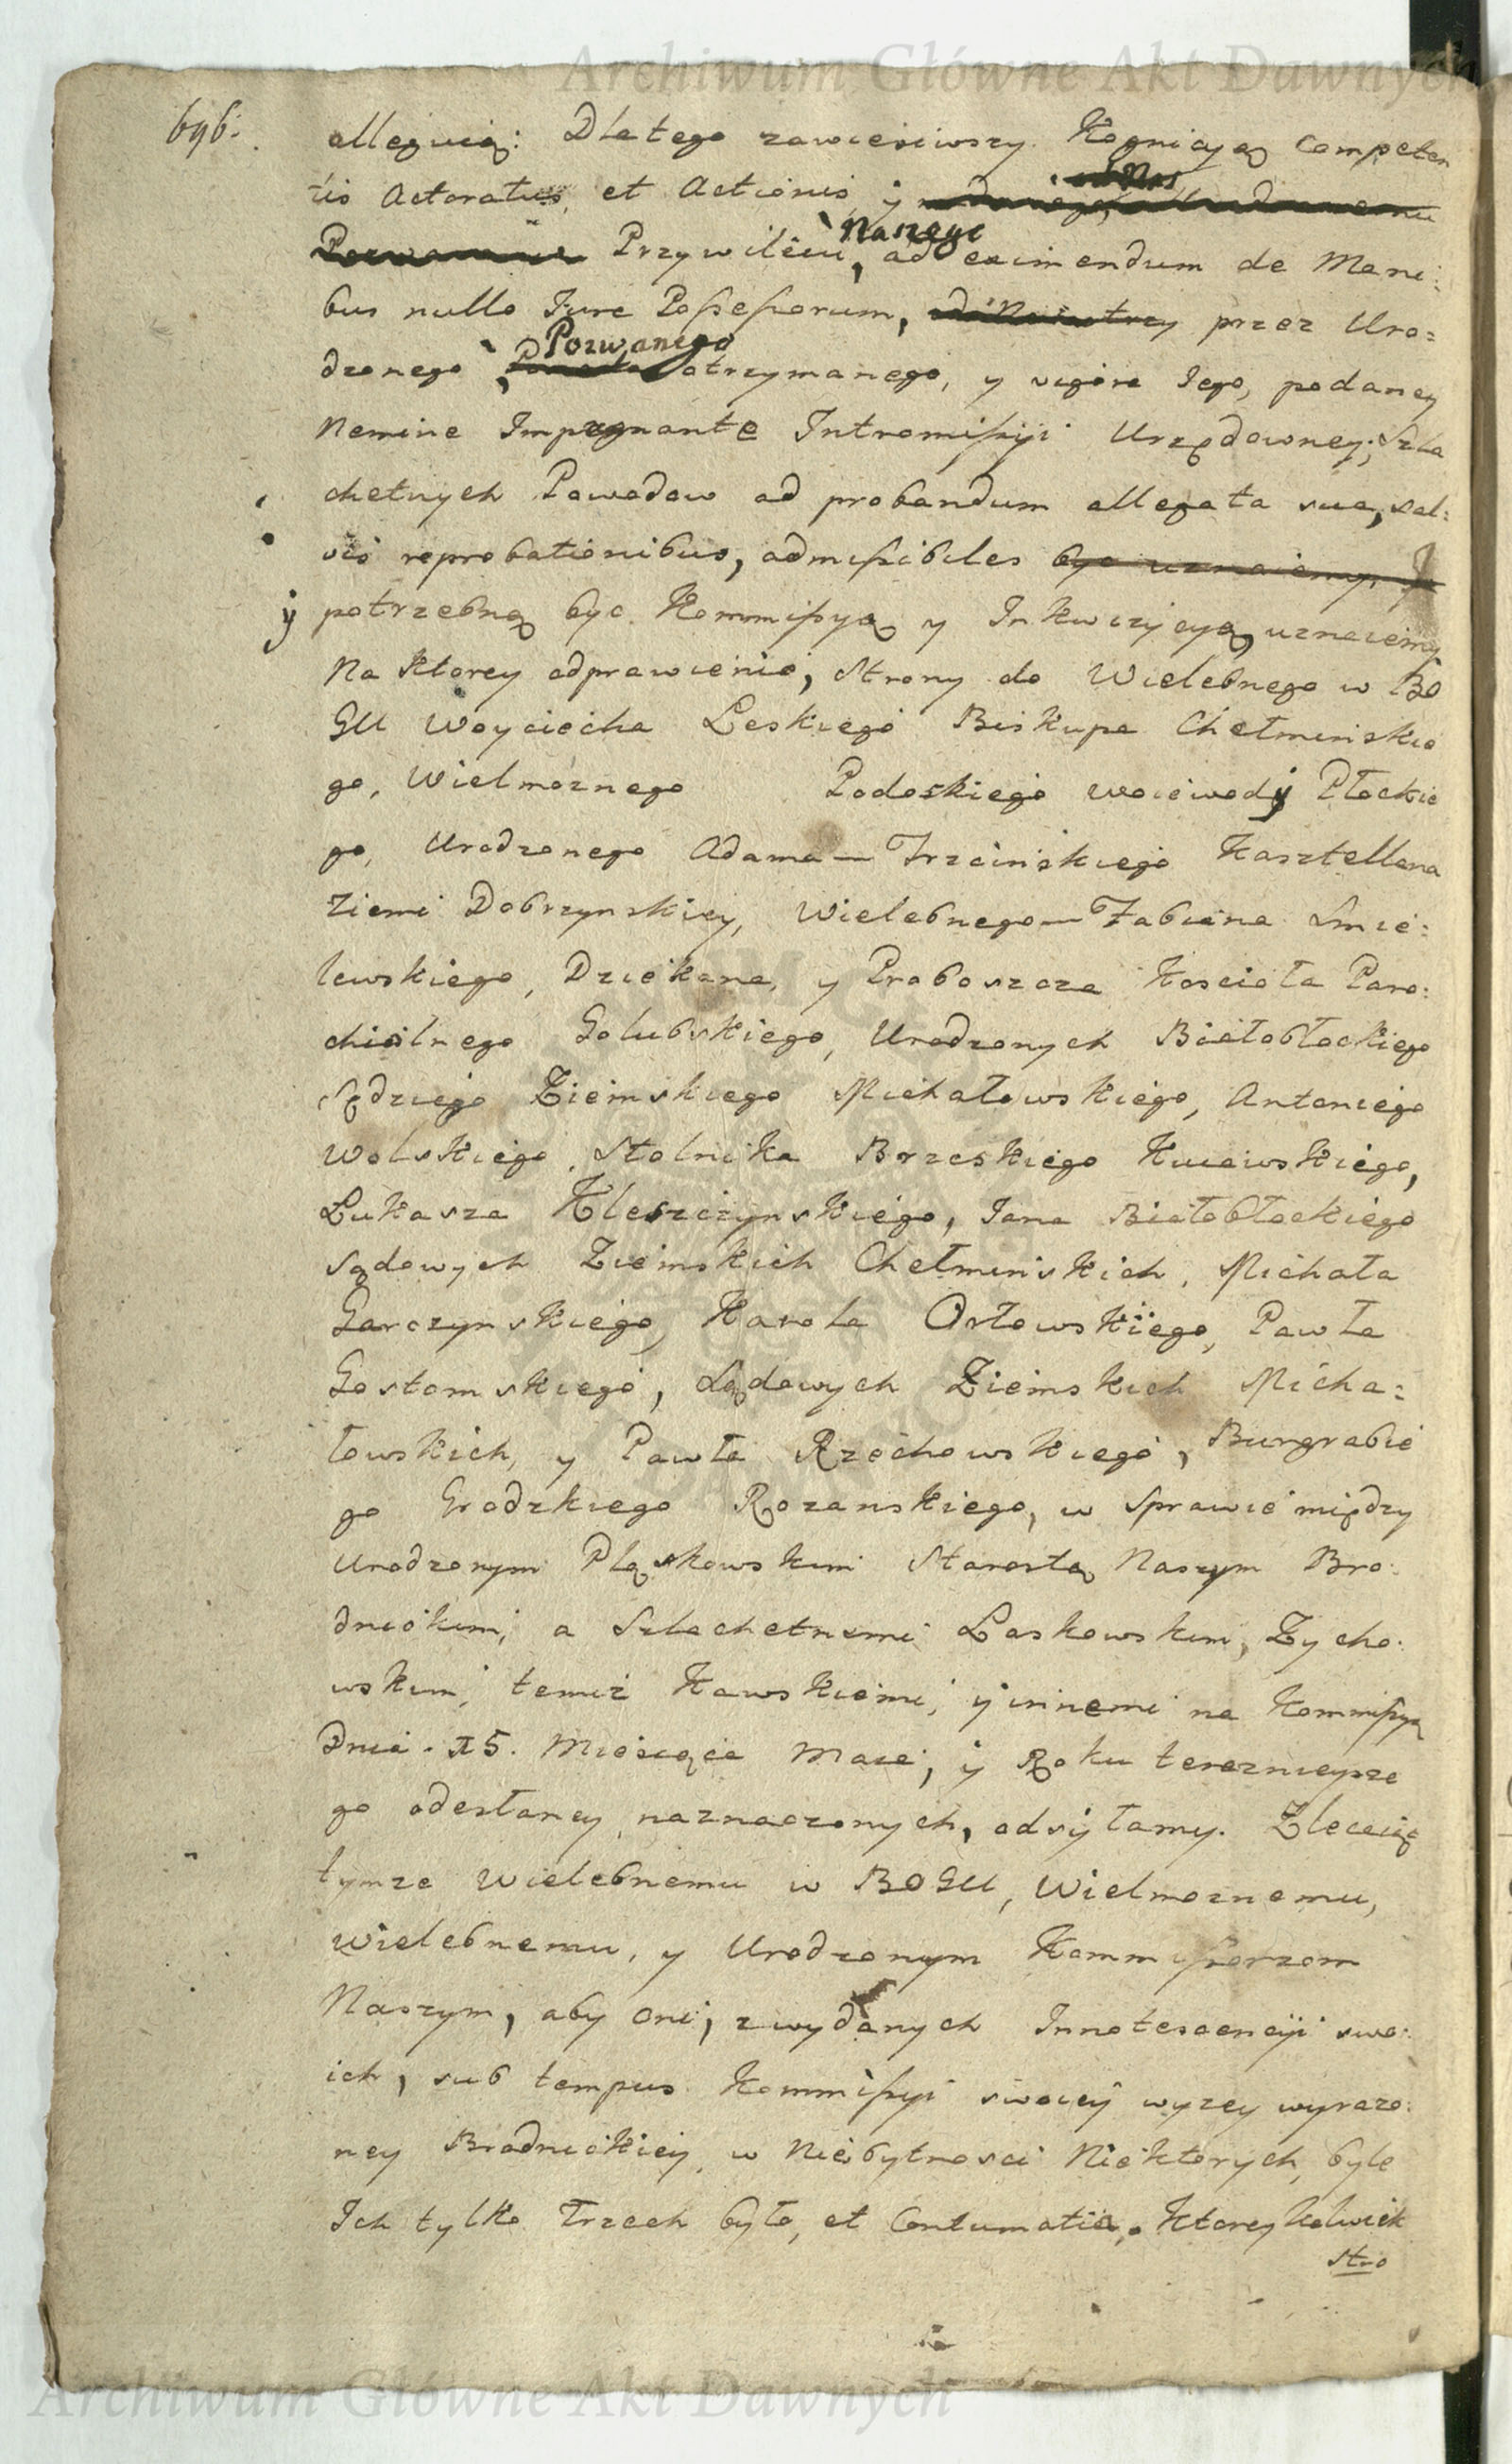 Archiwum Główne Akt Dawnych
696.
alleguią: Dlatego zawiesiwszy Kognicyą Competen
tis Actoratus, et Actionis, y
od Nas
Przywileiu, Naszego ad eximendum de Mani:
bus nullo Jure Possessorum, przez Uro:
dzonego, Pozwanego otrzymanego, y vigore Jego, podaney
Nemine Impugnante Intromissyi Urzędowney; Szla
chetnych Powodow ad probandum allegata sua, sal:
vis reprobationibus, admissibiles być uznaiemy. Y
y potrzebną być Kommissyą y Inkwizycyą, uznaiemy
Na Ktorey odprawienie, Strony do Wielebnego w BO
GU Woyciecha Leskiego Biskupa Chełminskie
go, Wielmożnego Podoskiego Woiewody Płockie
go, Urodzonego Adama Trzcinskiego Kasztellana
Ziemi Dobrzynskiey, Wielebnego Fabiana Smie:
lewskiego, Dziekana, y Proboszcza Koscioła Paro:
chialnego Golubskiego, Urodzonych Białobłockiego
Sędziego Ziemskiego Michałowskiego, Antoniego
Wolskiego, Stolnika Brzeskiego Kuiawskiego,
Łukasza Kleszczynskiego, Jana Białobłockiego
Sądowych Ziemskich Chełminskich, Michała
Garczynskiego, Karola Orłowskiego, Pawła
Gostomskiego, Sądowych Ziemskich Micha:
łowskich, y Pawła Rzochowskiego, Burgrabie
go Grodzkiego Rozanskiego, w Sprawie między
Urodzonym Pląskowskim Starostą Naszym Bro:
dnickim, a Szlachetnemi Laskowskim, Zycho:
wskim, temiż Kawskiemi, y innemi na Kommissyą
Dnia 15. Miesiąca Maia, y Roku terazniejsze
go odesłaney naznaczonych, odsyłamy. Zlecaiąc
tymze Wielebnemu w BOGU, Wielmoznemu,
Wielebnemu, y Urodzonym Kommissarzom
Naszym, aby oni, z wydanych Innotescencyi swo:
ich, sub tempus Kommissyi swoiey wyzey wyrazo:
ney Brodnickiey, w Niebytnosci Niektorych, byle
Ich tylko Trzech było, et Contumatia, Ktoreykolwiek
Stro
Archiwum Główne Akt Dawnych